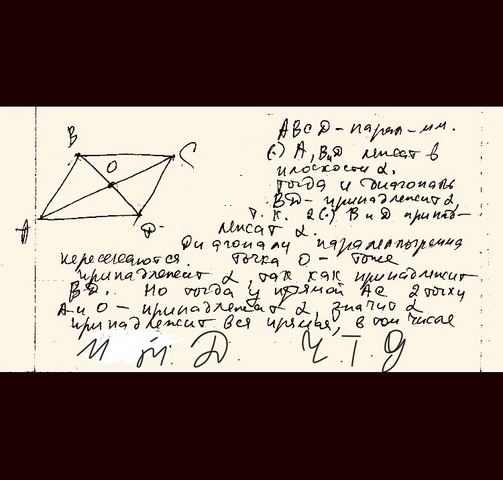 B
C
O
A
D
ABCD - парал-мм.
(·) A, B и D лежат в
плоскости α.
тогда и диагональ
BD - принадлежит α,
т. к. 2(·) B и D принад-
лежат α.
Диагонали параллелограмма
пересекаются. Точка O - тоже
принадлежит α так как принадлежит
BD. Но тогда у прямой AC 2 точки
A и O - принадлежат α, значит α
принадлежит вся прямая, в том числе
Ч.Т.Д